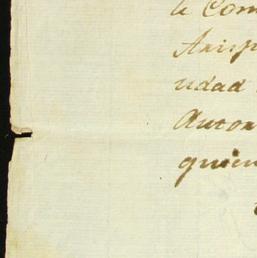 le Com
Arisp
udad
Autor
quien